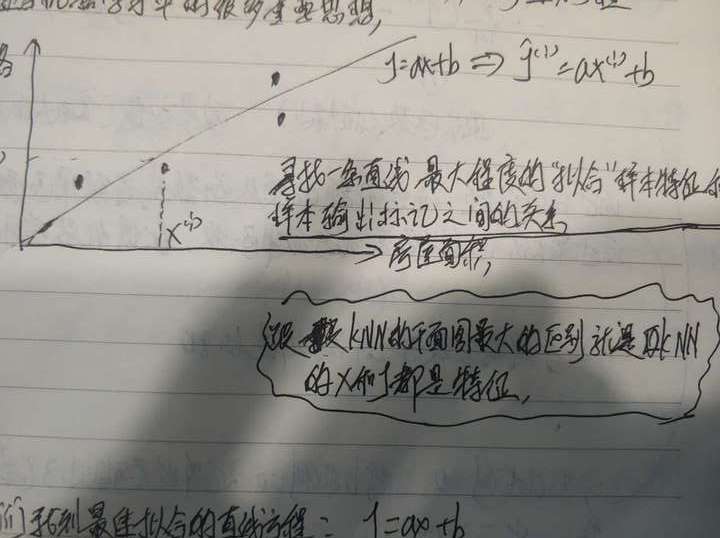 的很多重要思想,
y=ax+b ⇒ ŷ⁽ⁱ⁾=ax⁽ⁱ⁾+b
寻找一条直线 最大程度的"拟合"样本特征和
样本输出标记之间的关系
x⁽ⁱ⁾
房屋面积,
KNN的平面图最大的区别就是 KNN
的X和y都是特征,
们找到最佳拟合的直线方程: y=ax+b